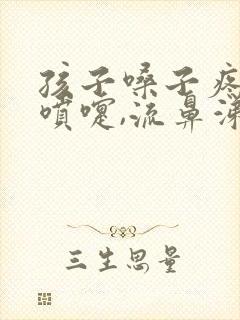 孩子嗓子疼
喷嚏,流鼻涕
三生思量